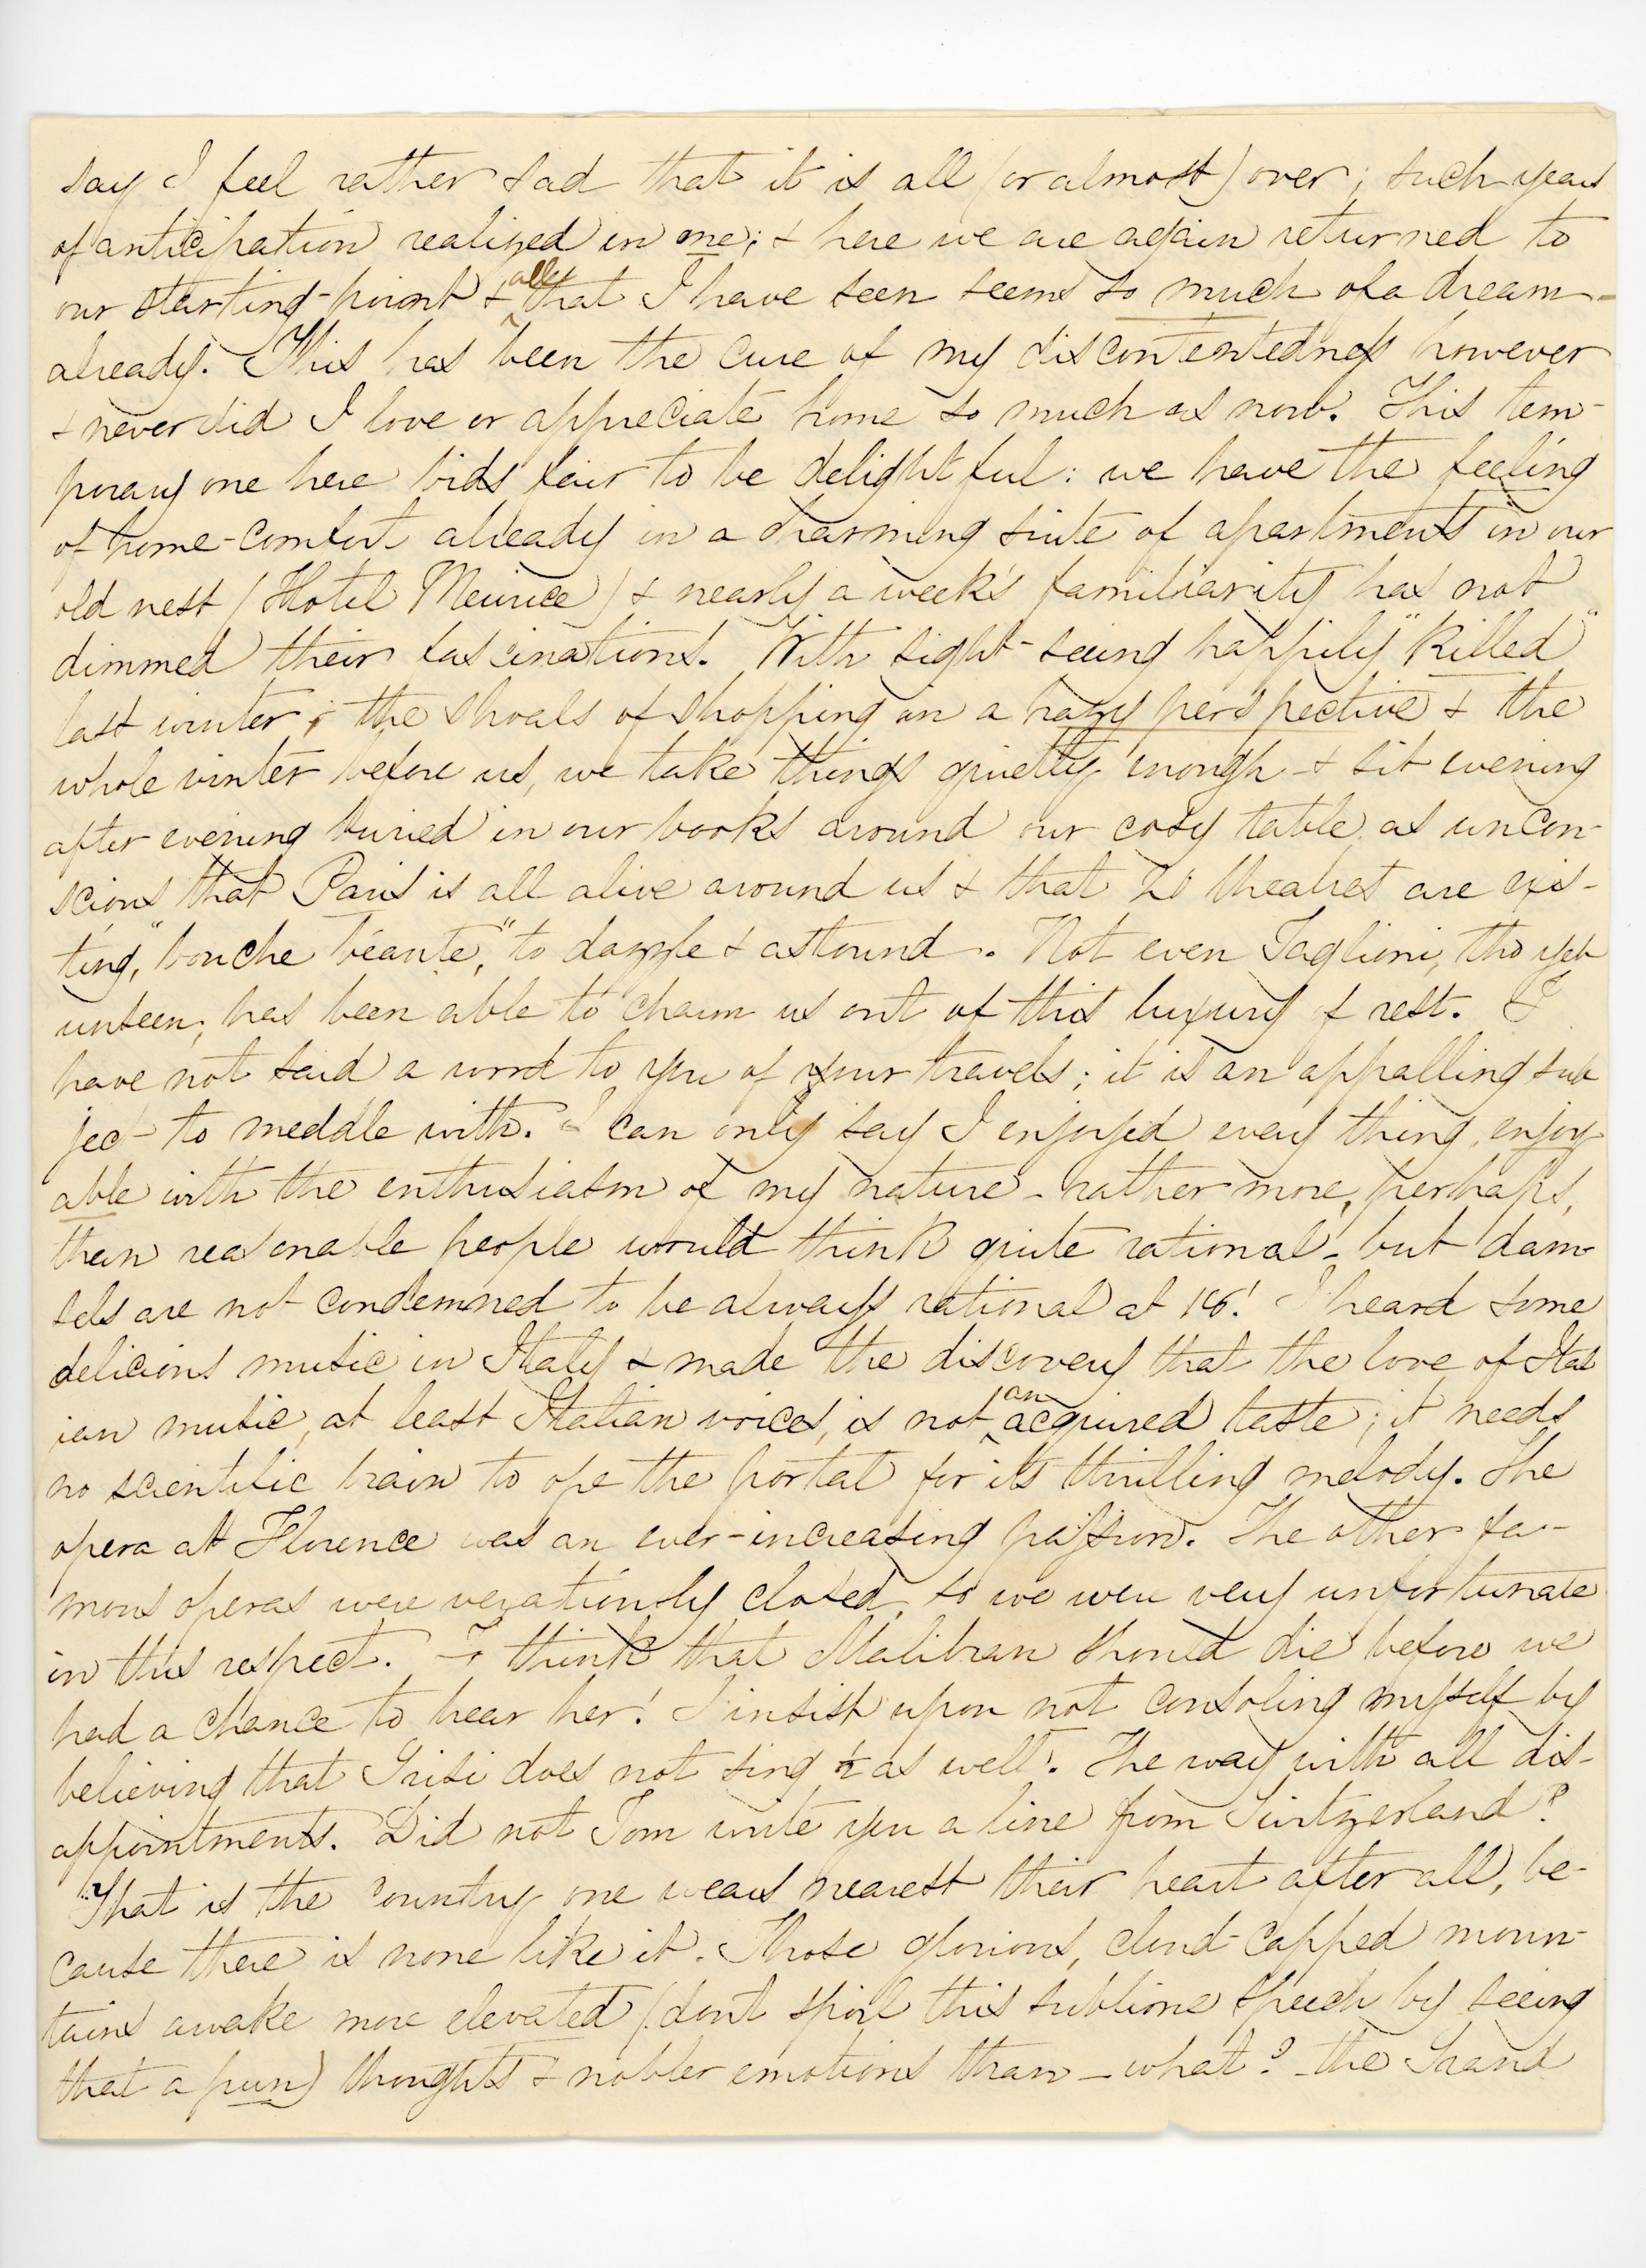 say I feel rather sad that it is all (or almost) over; such years
of anticipation realized in one; & here we are again returned to
our starting-point & all that I have seen seems so much of a dream
already. This has been the cure of my discontentedness however
& never did I love or appreciate home so much as now. This tem-
porary one here bids fair to be delightful: we have the feeling
of home-comfort already in a charming suite of apartments in our
old nest (Hotel Meurice) & nearly a week's familiarity has not
dimmed their fascinations. With sight-seeing happily "killed"
last winter, the shoals of shopping in a hazy perspective & the
whole winter before us, we take things quietly enough & sit evening
after evening buried in our books around our cosy table as uncon-
scious that Paris is all alive around us & that 20 theatres are exis-
ting, "bouche béante," to dazzle & astound. Not even Taglioni, tho yet
unseen, has been able to charm us out of this luxury of rest. I
have not said a word to you of your travels; it is an appalling sub
ject to meddle with. I can only say I enjoyed every thing enjoy-
able with the enthusiasm of my nature - rather more, perhaps,
than reasonable people would think quite rational - but dam-
sels are not condemned to be always rational at 16! I heard some
delicious music in Italy & made the discovery that the love of Ital
ian music, at least Italian voices, is not an acquired taste; it needs
no scientific brain to ope the portal for its thrilling melody. The
opera at Florence was an ever-increasing passion. The other fa-
mous operas were vexatiously closed, so we were very unfortunate
in this respect. To think that Malibran should die before we
had a chance to hear her! I insist upon not consoling myself by
believing that Grisi does not sing ½ as well. The way with all dis-
appointments. Did not Tom write you a line from Switzerland?
That is the country one wears nearest their heart after all, be-
cause there is none like it. Those glorious, cloud-capped moun-
tains awake more elevated (dont spoil this sublime speech by seeing
that a pun) thoughts & nobler emotions than - what? - the Grand